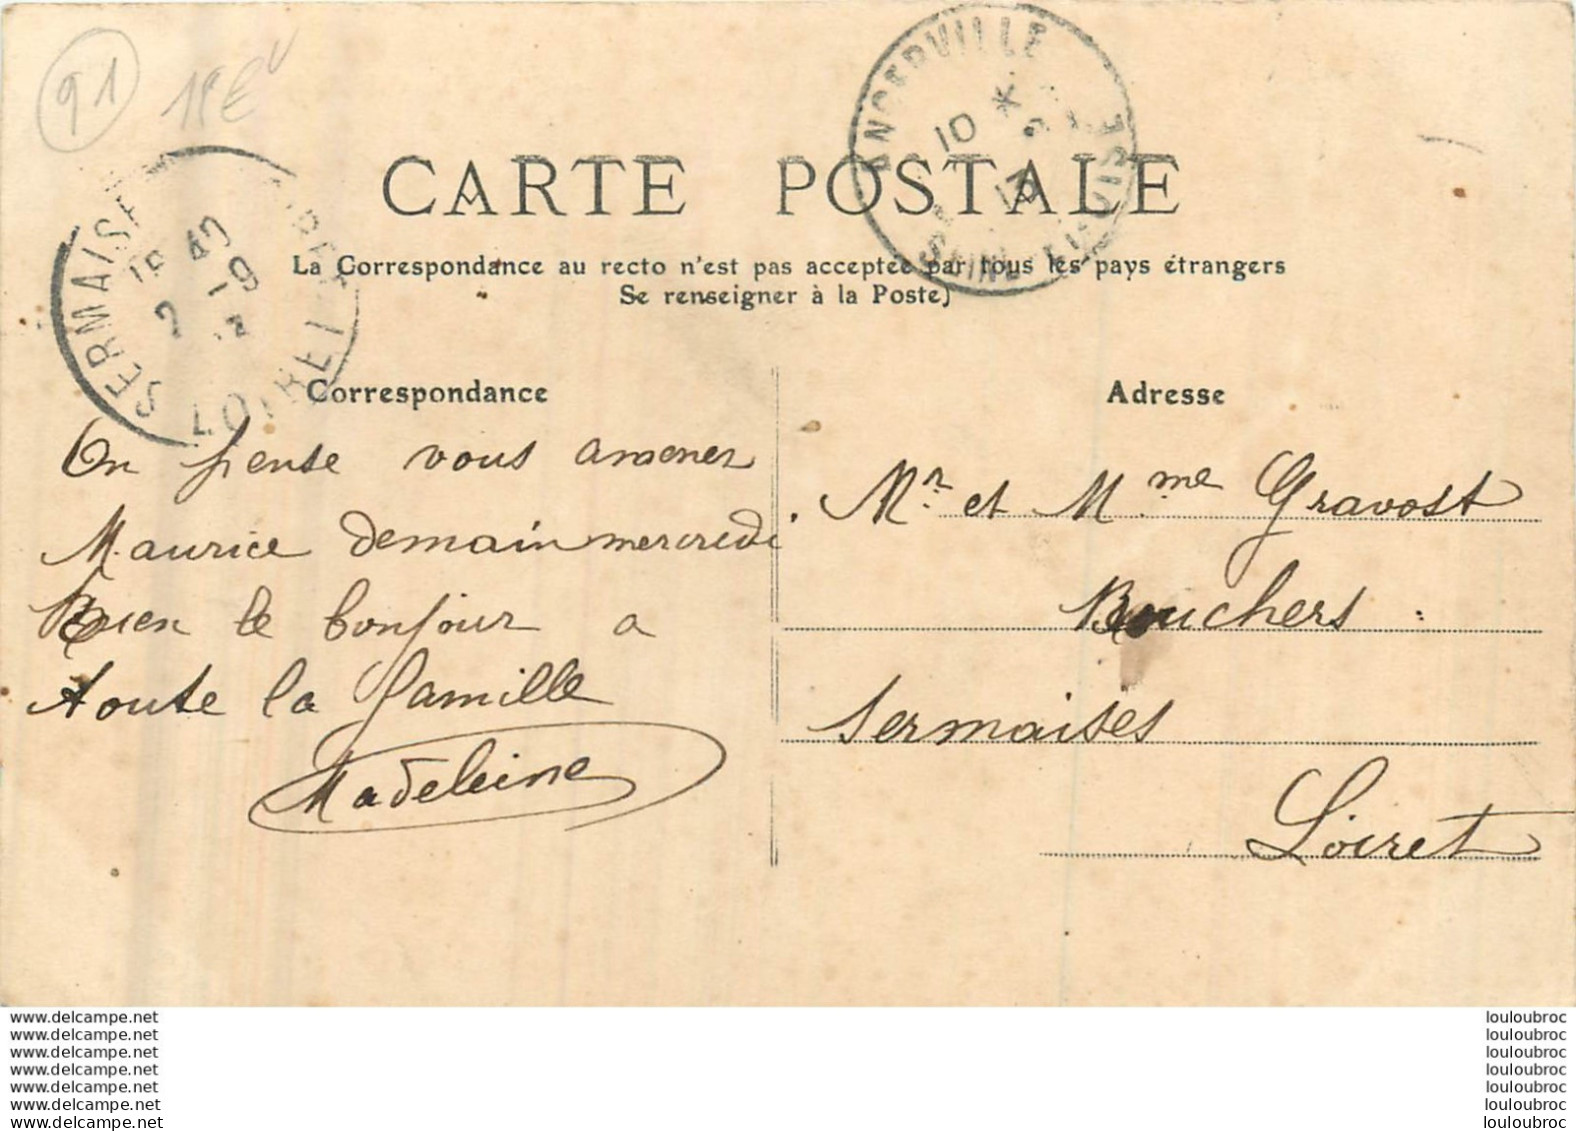 91
ANGERVILLE
10 *
13
SEINE-ET-OISE
CARTE POSTALE
La Correspondance au recto n'est pas acceptée par tous les pays étrangers
Se renseigner à la Poste)
SERMAISES
LOIRET
Correspondance
Adresse
On pense vous amener
Maurice demain mercredi
Bien le bonjour a
toute la famille
Madeleine
Mr. et Mme Gravost
Bouchers
Sermaises
Loiret
www.delcampe.net
www.delcampe.net
www.delcampe.net
www.delcampe.net
www.delcampe.net
www.delcampe.net
www.delcampe.net
louloubroc
louloubroc
louloubroc
louloubroc
louloubroc
louloubroc
louloubroc